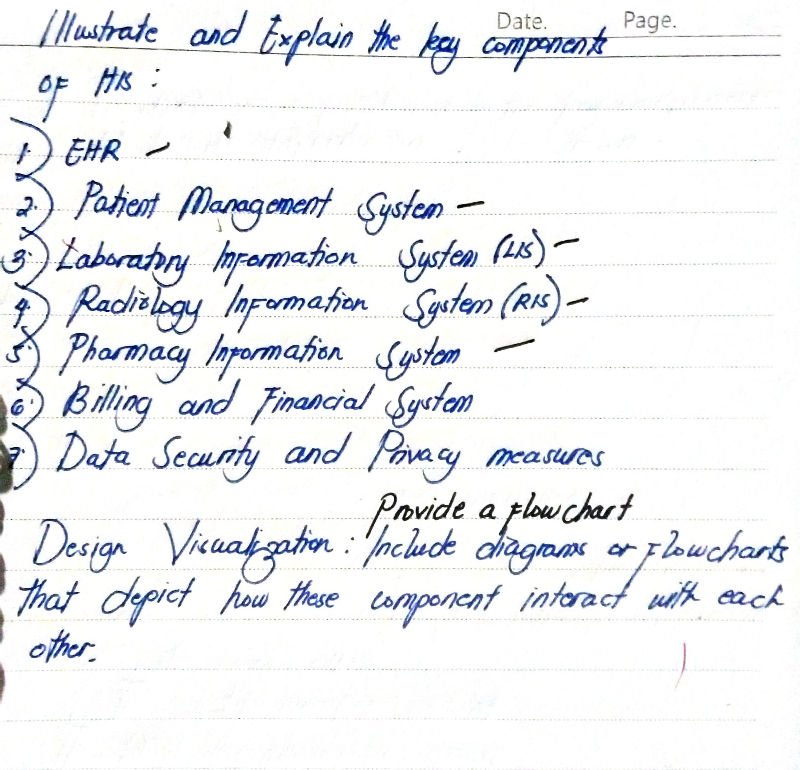 Date. Page.
Illustrate and Explain the key components
of HIS :
1.) EHR –
2.) Patient Management System –
3.) Laboratory Information System (LIS) –
4.) Radiology Information System (RIS) –
5.) Pharmacy Information System –
6.) Billing and Financial System
7.) Data Security and Privacy measures
Provide a flowchart
Design Visualization : Include diagrams or flowcharts
that depict how these component interact with each
other.